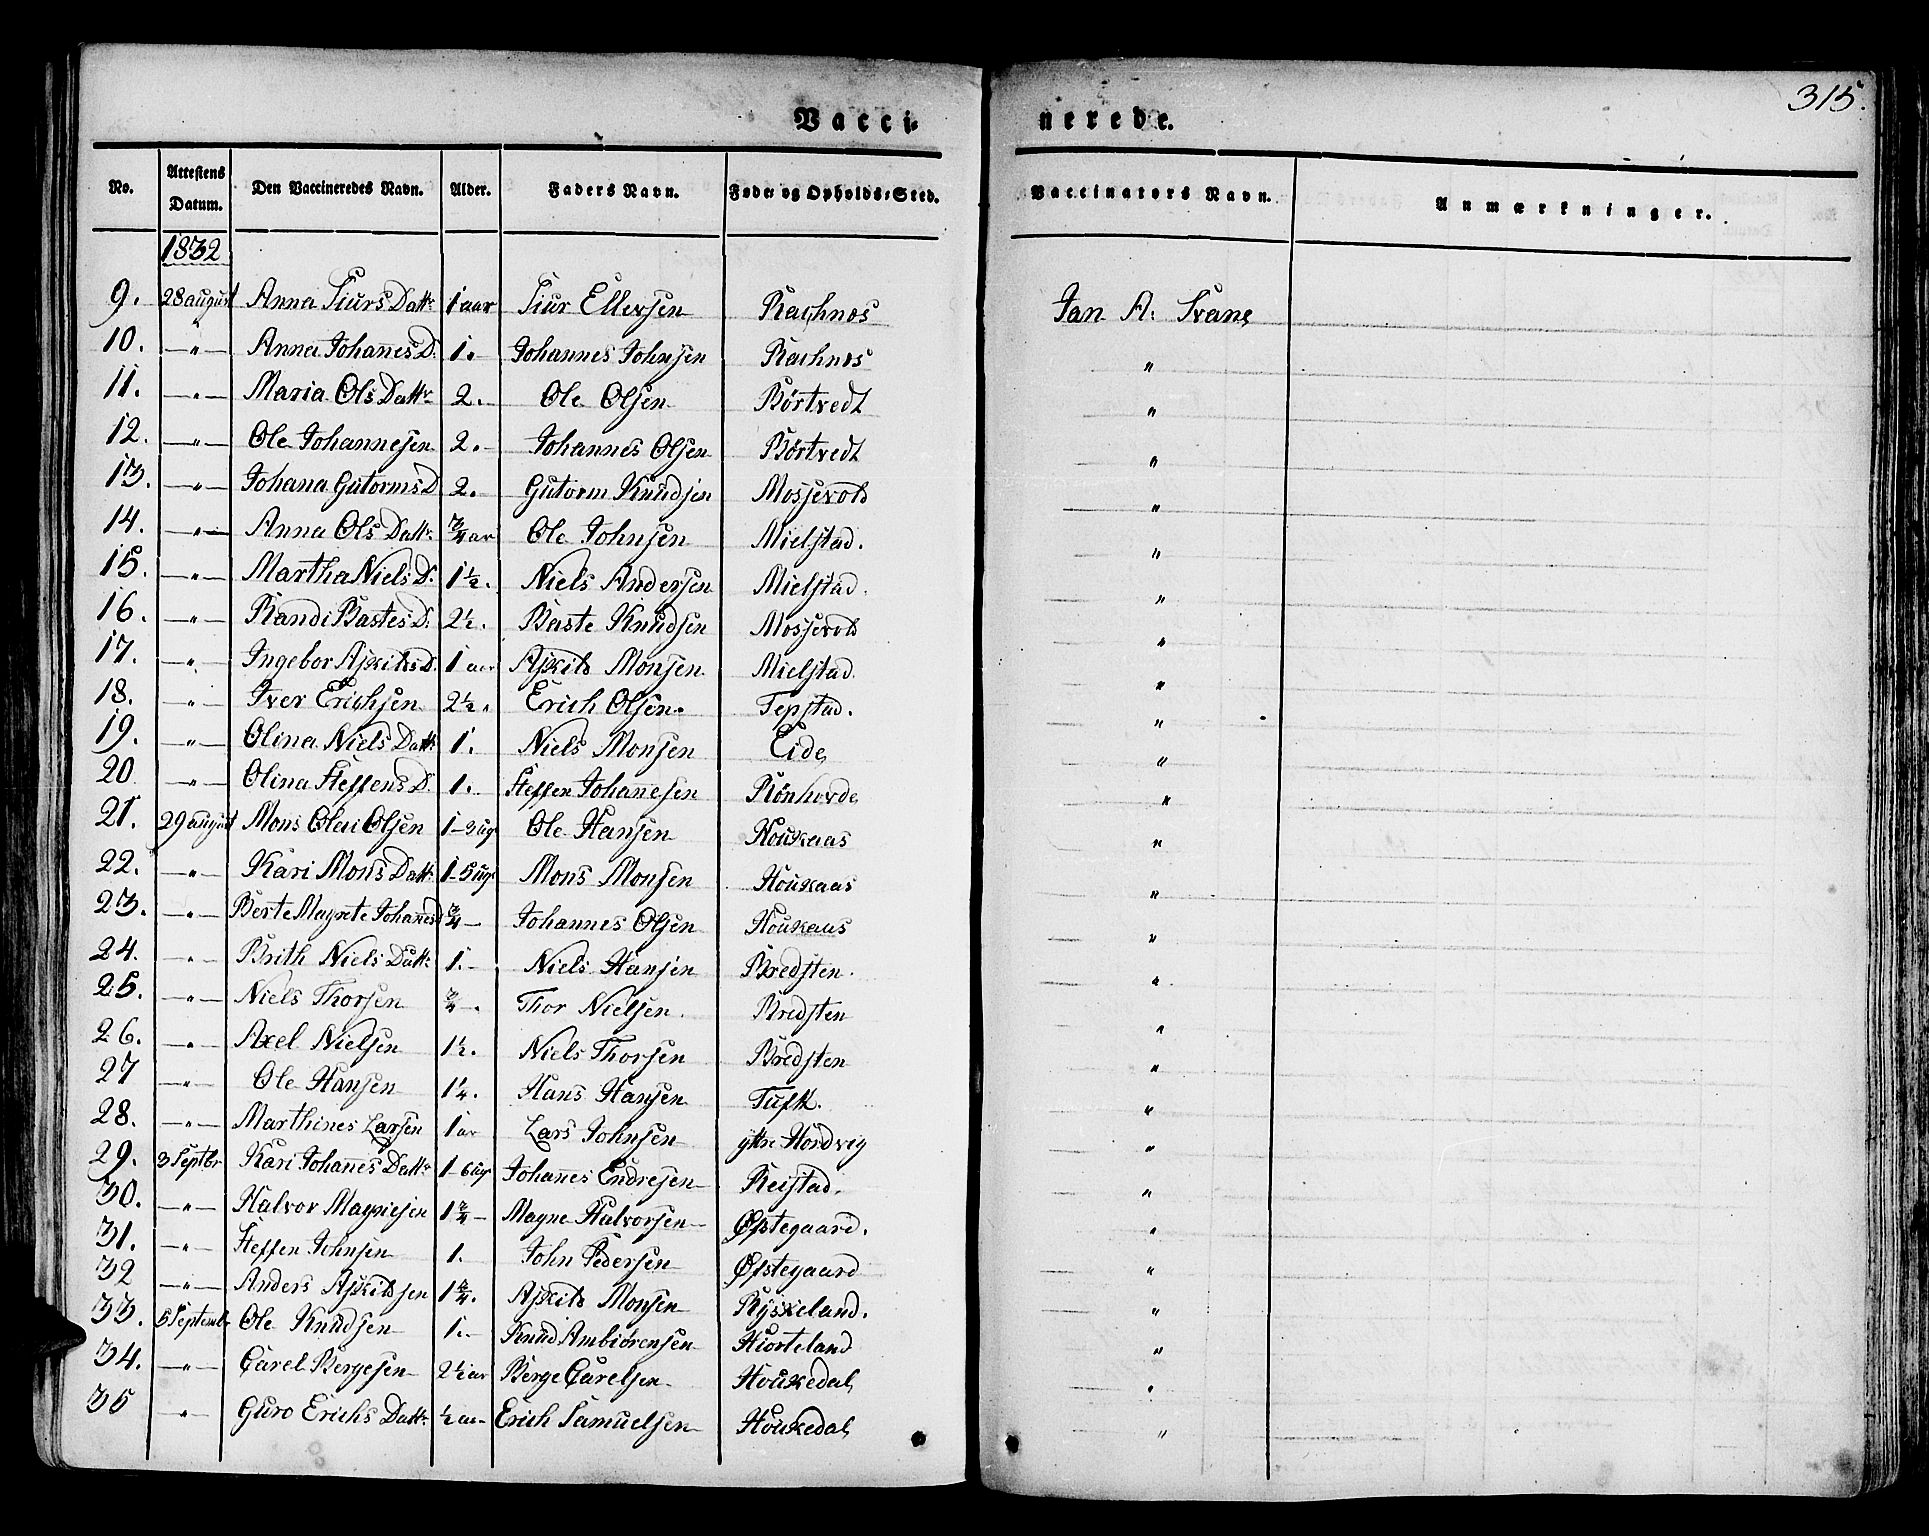 315.
Vacci-
nerede.
No. Attestens Datum. Den Vaccineredes Navn. Alder. Faders Navn. Føde- og Opholds-Sted. Vaccinators Navn. Anmærkninger.
1832
9. 28 august Anna Siurs Dattr 1 aar Siur Ellevsen Rachnes Jan A. Svane
10. —„— Anna Johanes D. 1. Johannes Johnsen Rachnes — „
11. —„— Maria Ols Dattr 2. Ole Olsen Børtvedt — „
12. —„— Ole Johannesen 2. Johannes Olsen Børtvedt — „
13. —„— Johana Gutorms D. 2. Gutorm Knudsen Mosjevold — „
14. —„— Anna Ols Dattr 3/4 ar Ole Johnsen Mielstad. — „
15. —„— Martha Niels D. 1 1/2. Niels Andersen Mielstad. — „
16. —„— Randi Bastes D. 2 1/2. Baste Knudsen Mosjevold — „
17. —„— Ingebor Askilds D. 1 aar Askild Monsen Mielstad. — „
18. —„— Iver Erichsen 2 1/2 „ Erich Olsen. Tepstad. — „
19. —„— Olina Niels Dattr 1. Niels Monsen Eide — „
20 —„— Olina Steffens D. 1. Steffen Johanesen Rønhovde — „
21. 29 august Mons Olai Olsen 1-3 ug Ole Hansen Houkaas — „
22. —„— Kari Mons Dattr 1-5 ug Mons Monsen Houkaas — „
23. —„— Berte Magrete Johanes D 3/4 — Johannes Olsen Houkaas — „
24. —„— Brith Niels Dattr 1. Niels Hansen Bredsten. — „
25. —„— Niels Thorsen 3/4. Thor Nielsen. Bredsten — „
26. —„— Axel Nielsen 1 1/2. Niels Thorsen Bredsten — „
27 —„— Ole Hansen 1 1/4. Hans Hansen Tuft. — „
28. —„— Marthines Larsen 1 ar Lars Johnsen yttre Hordvig — „
29. 3 Septbr Kari Johanes Dattr 1-6 ug Johanes Endresen Reistad. — „
30. —„— Halvor Magnesen 1 3/4 — Magne Halvorsen Østegaard. — „
31. —„— Steffen Johnsen 1. John Pedersen Østegaard — „
32 —„— Anders Askildsen 1 3/4. Askild Monsen Rysxeland. — „
33. 5 Septembr Ole Knudsen 1. Knud Ambiörensen Hiorteland — „
34. —„— Carel Bergesen 2 1/2 ar Berge Carelsen Houkedal — „
35 —„— Guro Erichs Dattr 1/2 aar Erich Samuelsen Houkedal — „